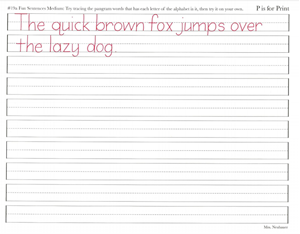 #19a Fun Sentences Medium: Try tracing the pangram words that has each letter of the alphabet in it, then try it on your own. P is for Print
The quick brown fox jumps over
the lazy dog.